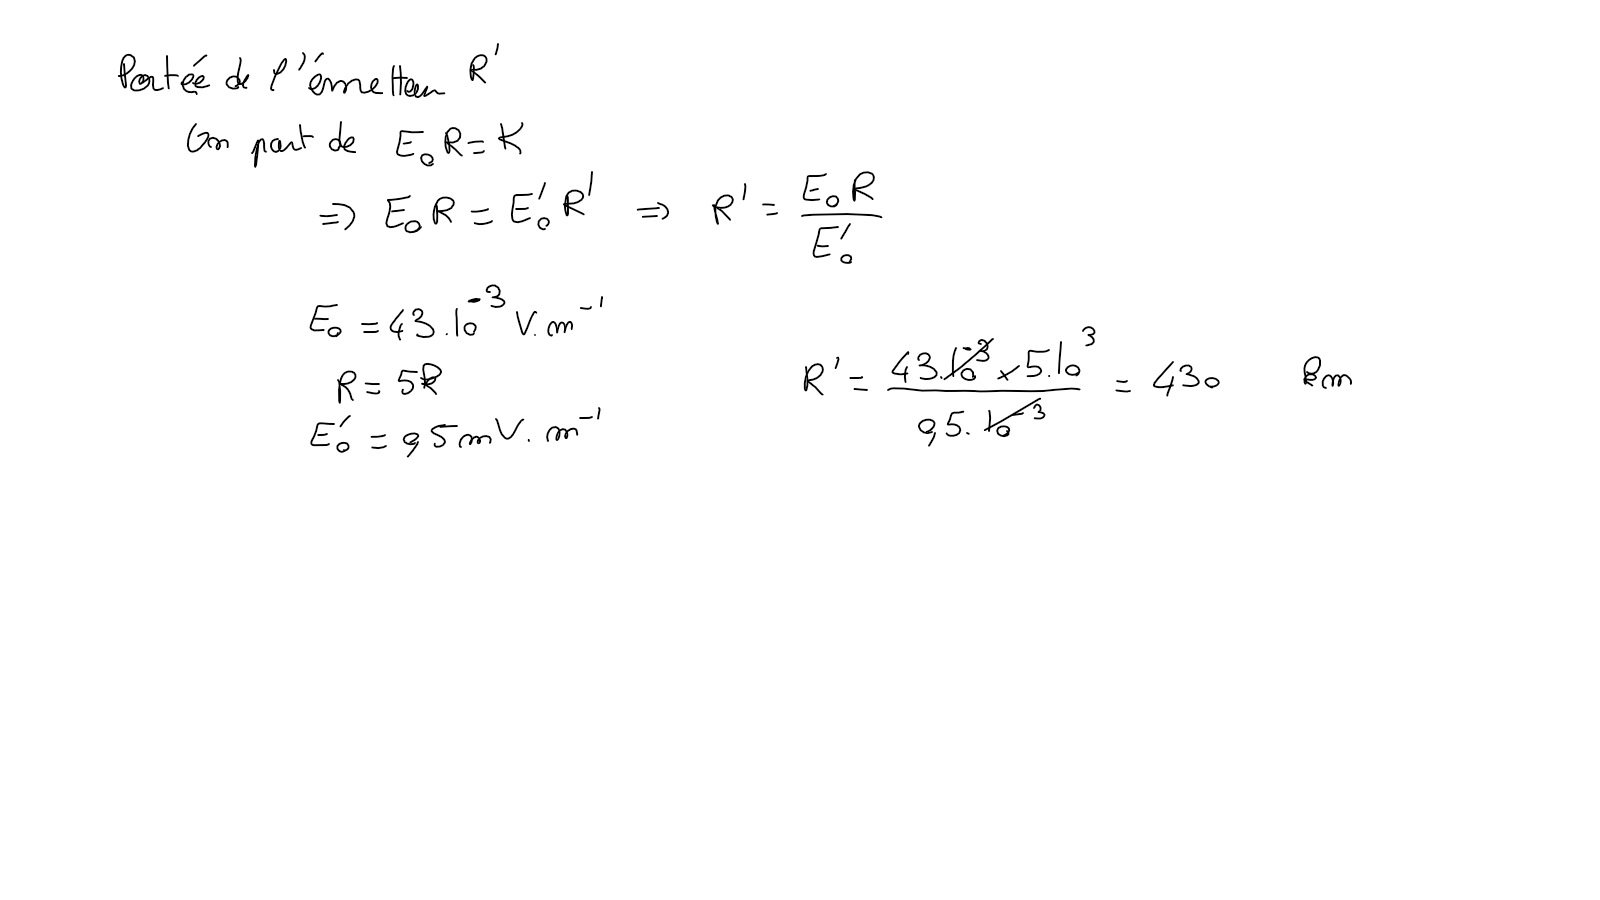 Portée de l'émetteur R'
On part de E₀R = K
⇒ E₀R = E'₀R' ⇒ R' = E₀R / E'₀
E₀ = 43.10⁻³ V.m⁻¹
R = 5k
E'₀ = 0,5 mV.m⁻¹
R' = 43.10⁻³ × 5.10³ / 0,5.10⁻³ = 430 km